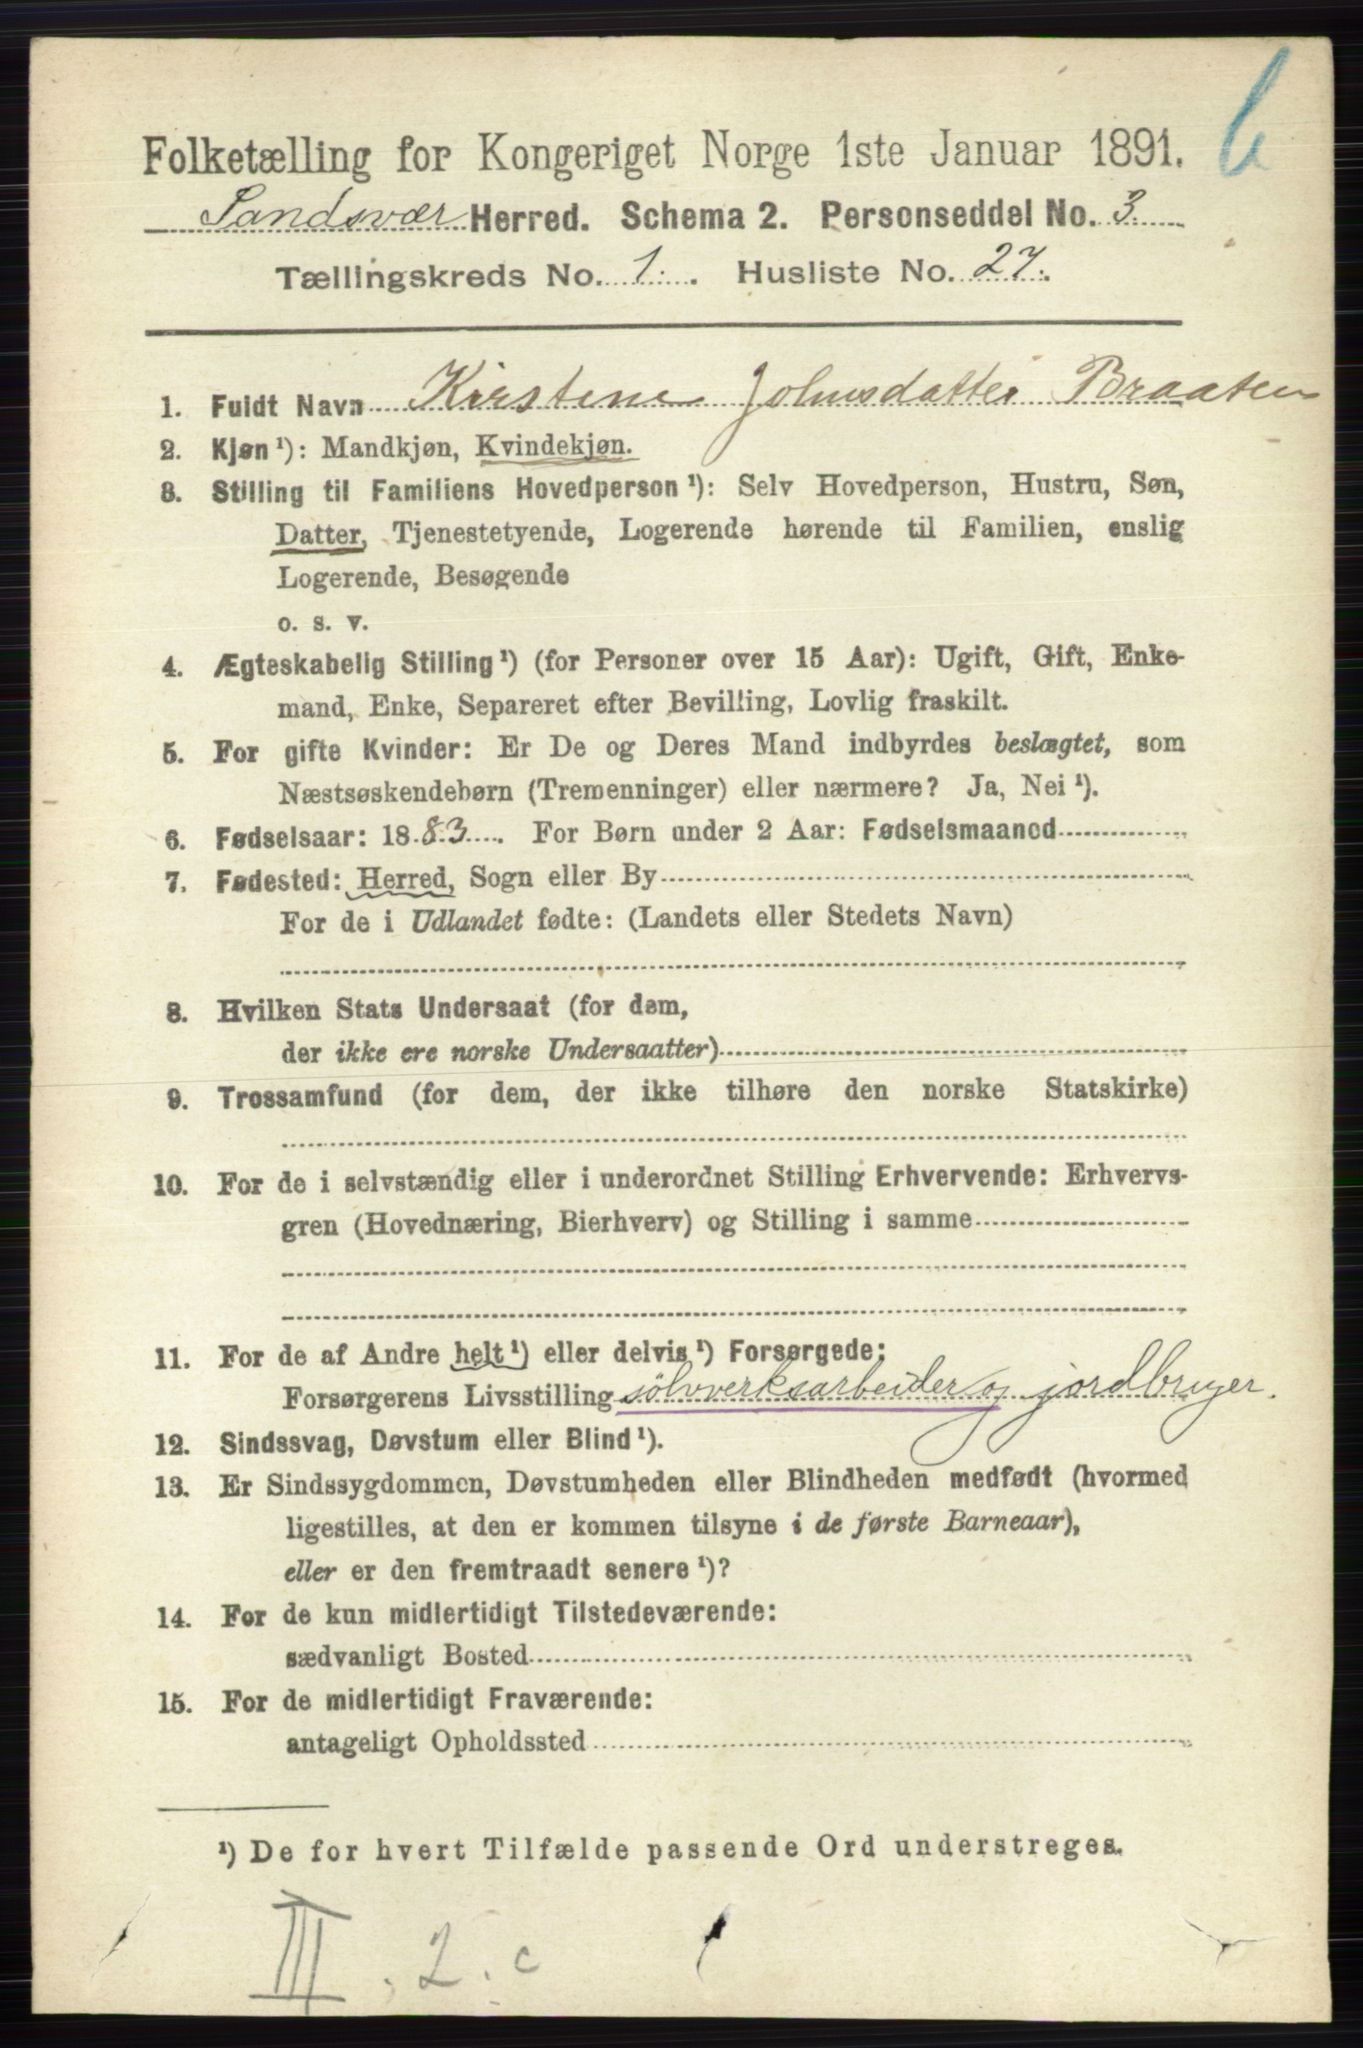 6
Folketælling for Kongeriget Norge 1ste Januar 1891.
Sandsvær Herred. Schema 2. Personseddel No. 3.
Tællingskreds No. 1. Husliste No. 27.
1. Fuldt Navn Kirstine Johnsdatter Braaten
2. Kjøn¹): Mandkjøn, Kvindekjøn.
3. Stilling til Familiens Hovedperson¹): Selv Hovedperson, Hustru, Søn,
Datter, Tjenestetyende, Logerende hørende til Familien, enslig
Logerende, Besøgende
o. s. v.
4. Ægteskabelig Stilling¹) (for Personer over 15 Aar): Ugift, Gift, Enke-
mand, Enke, Separeret efter Bevilling, Lovlig fraskilt.
5. For gifte Kvinder: Er De og Deres Mand indbyrdes beslægtet, som
Næstsøskendebørn (Tremenninger) eller nærmere? Ja, Nei¹).
6. Fødselsaar: 1883. For Børn under 2 Aar: Fødselsmaaned
7. Fødested: Herred, Sogn eller By
For de i Udlandet fødte: (Landets eller Stedets Navn)
8. Hvilken Stats Undersaat (for dem,
der ikke ere norske Undersaatter)
9. Trossamfund (for dem, der ikke tilhøre den norske Statskirke)
10. For de i selvstændig eller i underordnet Stilling Erhvervende: Erhvervs-
gren (Hovednæring, Bierhverv) og Stilling i samme
11. For de af Andre helt¹) eller delvis¹) Forsørgede:
Forsørgerens Livsstilling sölvverksarbeider og jordbruger.
12. Sindssvag, Døvstum eller Blind¹).
13. Er Sindssygdommen, Døvstumheden eller Blindheden medfødt (hvormed
ligestilles, at den er kommen tilsyne i de første Barneaar),
eller er den fremtraadt senere¹)?
14. For de kun midlertidigt Tilstedeværende:
sædvanligt Bosted
15. For de midlertidigt Fraværende:
antageligt Opholdssted
¹) De for hvert Tilfælde passende Ord understreges.
III. 2. c